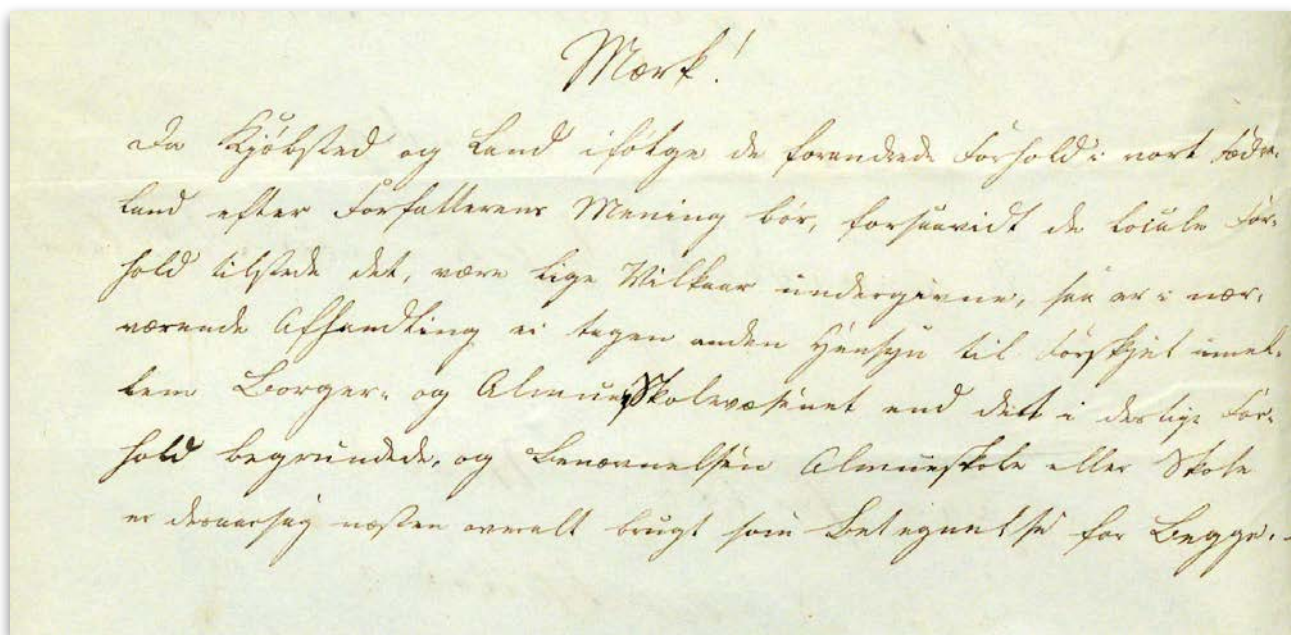 Mærk!
Da Kjøbsted og Land ifølge de forandrede Forhold i vort Fædre-
land efter Forfatterens Mening bør, forsaavidt de locale For-
hold tilstede det, være lige Vilkaar undergivne, saa er i nær-
værende Afhandling ei tagen anden Hensyn til Forskjel imel-
lem Borger- og AlmueSkolevæsenet end det i deslige For-
hold begrundede, og Benævnelsen Almueskole eller Skole
er desaarsag næsten overalt brugt som Betegnelse for Begge.-